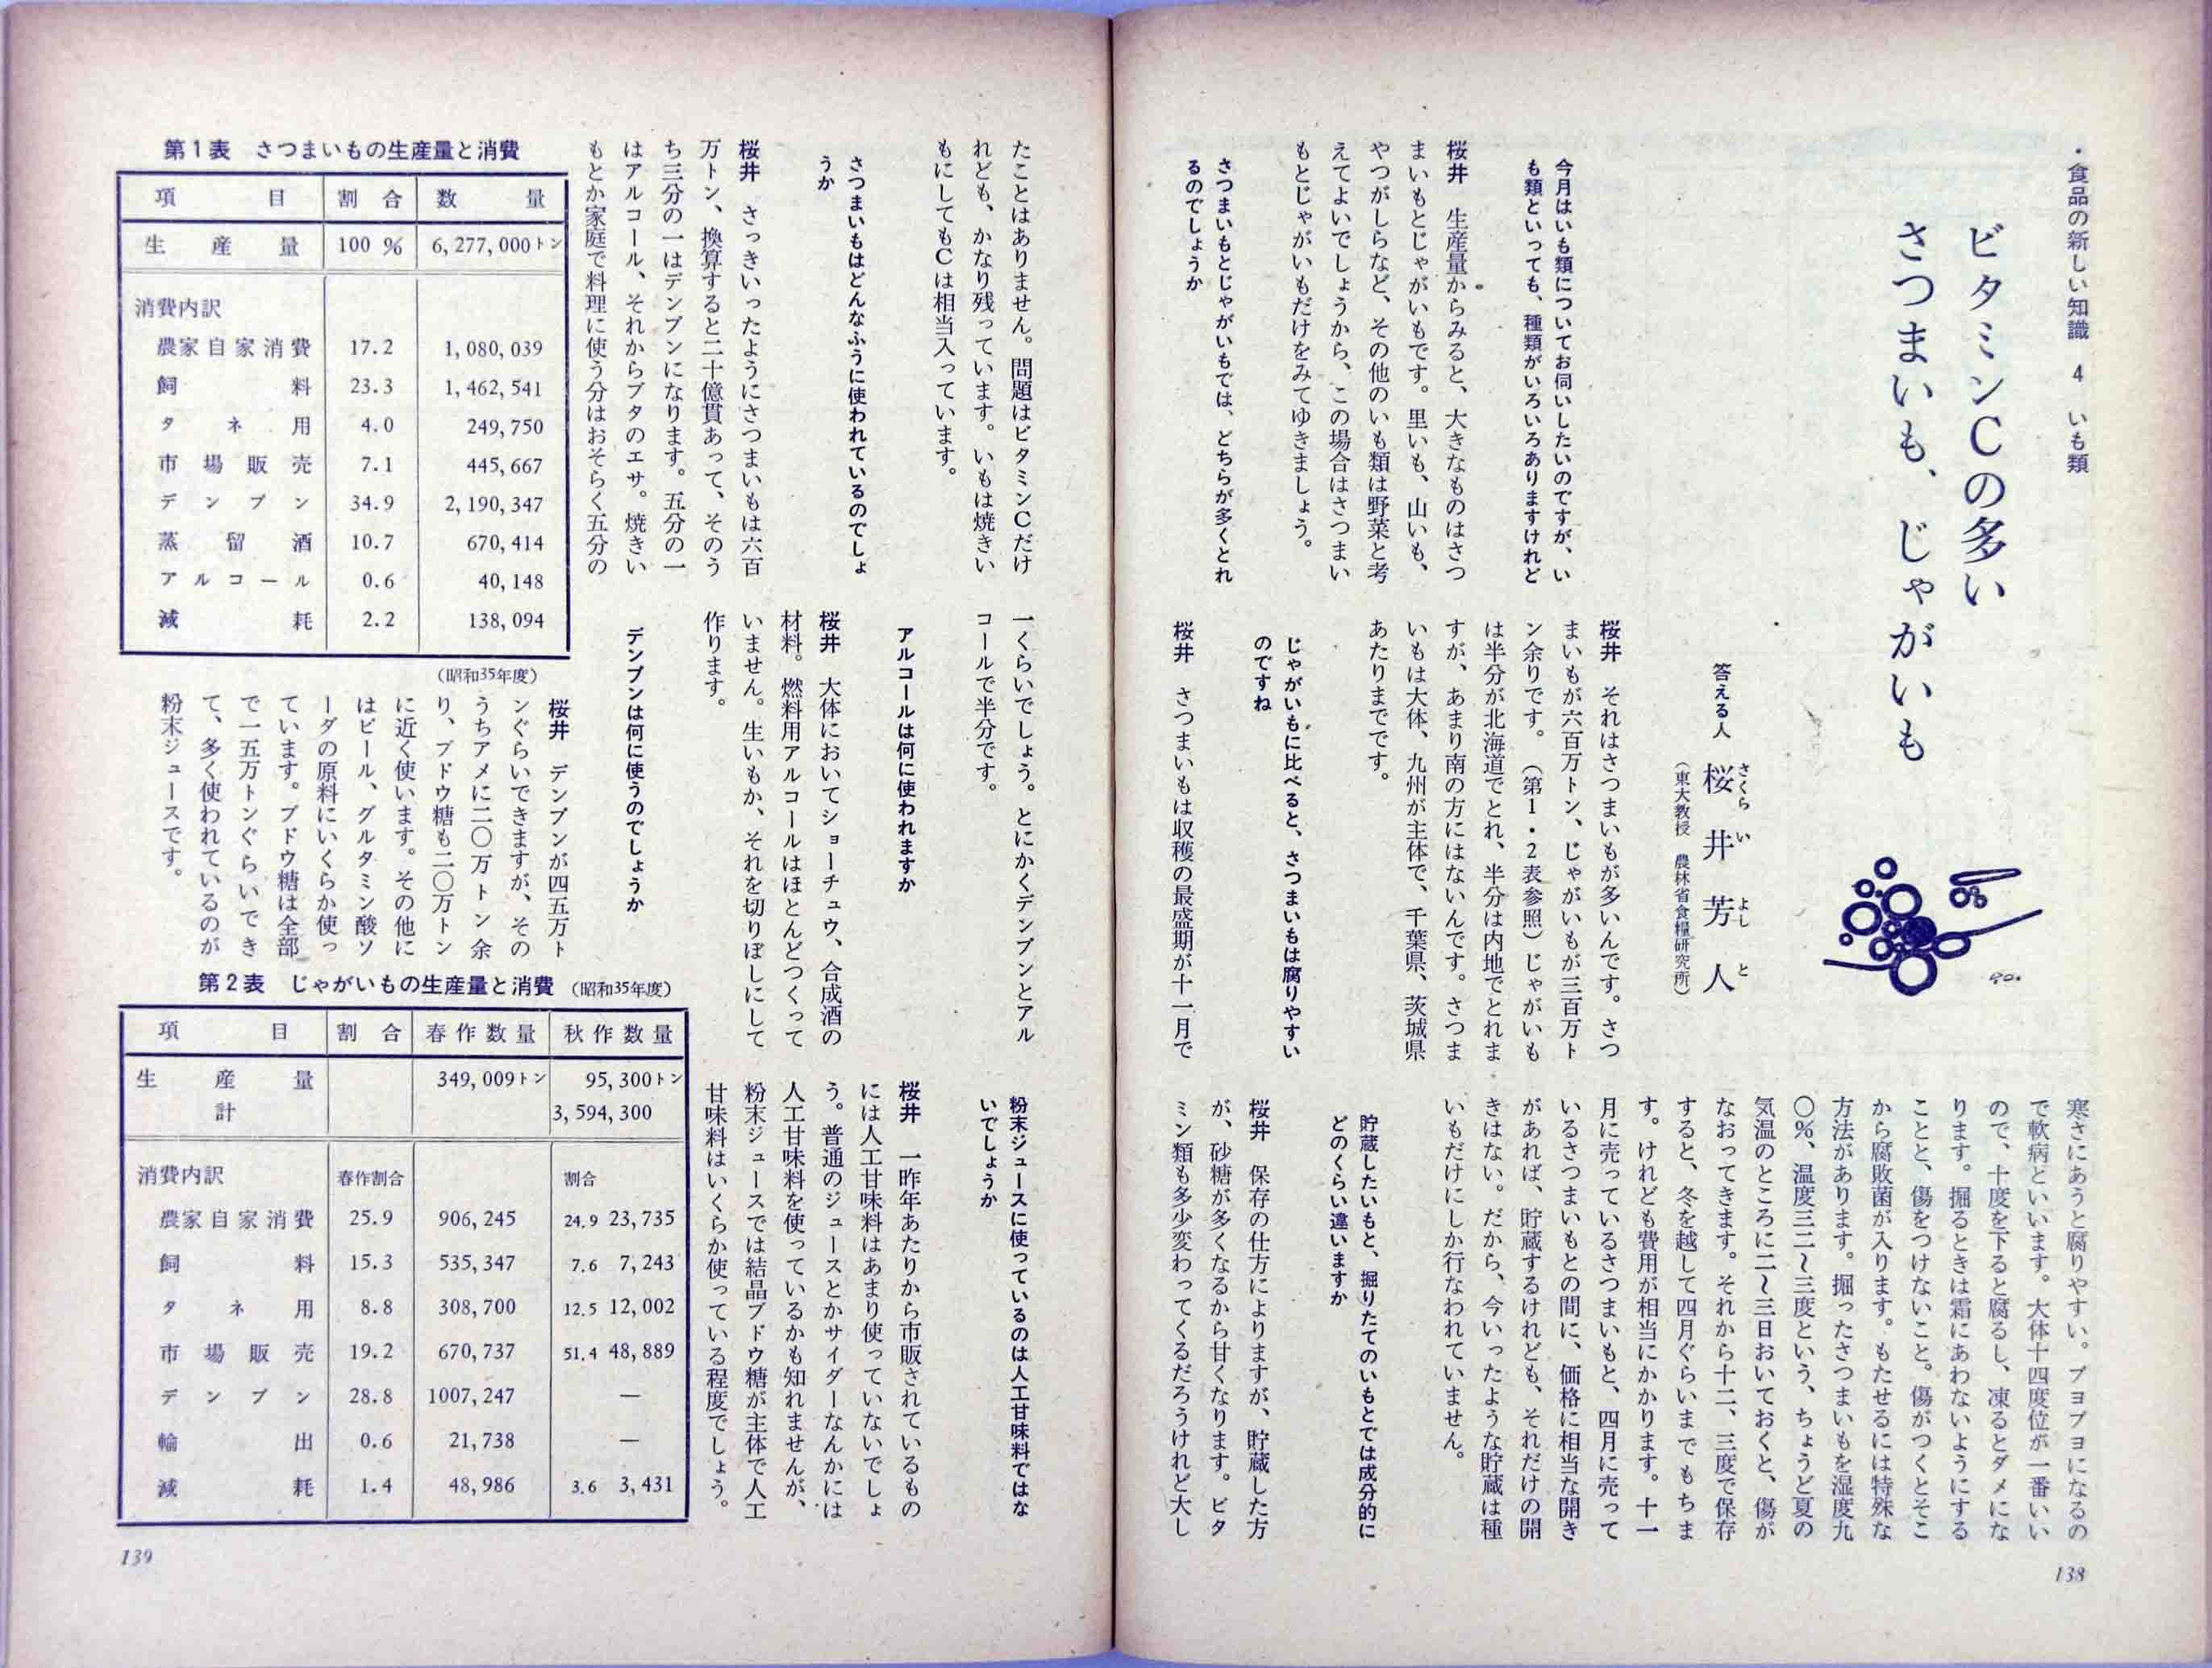 ・食品の新しい知識 4 いも類
ビタミンCの多い
さつまいも、じゃがいも
答える人 桜井芳人
さくら い よし と
（東大教授 農林省食糧研究所）
今月はいも類についてお伺いしたいのですが、い
も類といっても、種類がいろいろありますけれど
桜井 生産量からみると、大きなものはさつ
まいもとじゃがいもです。里いも、山いも、
やつがしらなど、その他のいも類は野菜と考
えてよいでしょうから、この場合はさつまい
もとじゃがいもだけをみてゆきましょう。
さつまいもとじゃがいもでは、どちらが多くとれ
るのでしょうか
桜井 それはさつまいもが多いんです。さつ
まいもが六百万トン、じゃがいもが三百万ト
ン余りです。（第1・2表参照）じゃがいも
は半分が北海道でとれ、半分は内地でとれま
すが、あまり南の方にはないんです。さつま
いもは大体、九州が主体で、千葉県、茨城県
あたりまでです。
じゃがいもに比べると、さつまいもは腐りやすい
のですね
桜井 さつまいもは収穫の最盛期が十一月で
寒さにあうと腐りやすい。ブヨブヨになるの
で軟病といいます。大体十四度位が一番いい
ので、十度を下ると腐るし、凍るとダメにな
ります。掘るときは霜にあわないようにする
ことと、傷をつけないこと。傷がつくとそこ
から腐敗菌が入ります。もたせるには特殊な
方法があります。掘ったさつまいもを湿度九
〇％、温度三二〜三度という、ちょうど夏の
気温のところに二〜三日おいておくと、傷が
なおってきます。それから十二、三度で保存
すると、冬を越して四月ぐらいまでもちま
す。けれども費用が相当にかかります。十一
月に売っているさつまいもと、四月に売って
いるさつまいもとの間に、価格に相当な開き
があれば、貯蔵するけれども、それだけの開
きはない。だから、今いったような貯蔵は種
いもだけにしか行なわれていません。
貯蔵したいもと、掘りたてのいもとでは成分的に
どのくらい違いますか
桜井 保存の仕方によりますが、貯蔵した方
が、砂糖が多くなるから甘くなります。ビタ
ミン類も多少変わってくるだろうけれど大し
138
たことはありません。問題はビタミンCだけ
れども、かなり残っています。いもは焼きい
もにしてもCは相当入っています。
さつまいもはどんなふうに使われているのでしょ
うか
桜井 さっきいったようにさつまいもは六百
万トン、換算すると二十億貫あって、そのう
ち三分の一はデンプンになります。五分の一
はアルコール、それからブタのエサ。焼きい
もとか家庭で料理に使う分はおそらく五分の
一くらいでしょう。とにかくデンプンとアル
コールで半分です。
アルコールは何に使われますか
桜井 大体においてショーチュウ、合成酒の
材料。燃料用アルコールはほとんどつくって
いません。生いもか、それを切りぼしにして
作ります。
デンプンは何に使うのでしょうか
桜井 デンプンが四五万ト
ンぐらいできますが、その
うちアメに二〇万トン余
り、ブドウ糖も二〇万トン
に近く使います。その他に
はビール、グルタミン酸ソ
ーダの原料にいくらか使っ
ています。ブドウ糖は全部
で一五万トンぐらいでき
て、多く使われているのが
粉末ジュースです。
粉末ジュースに使っているのは人工甘味料ではな
いでしょうか
桜井 一昨年あたりから市販されているもの
には人工甘味料はあまり使っていないでしょ
う。普通のジュースとかサイダーなんかには
人工甘味料を使っているかも知れませんが、
粉末ジュースでは結晶ブドウ糖が主体で人工
甘味料はいくらか使っている程度でしょう。
第1表 さつまいもの生産量と消費
項目 割合 数量
生産量 100% 6,277,000トン
消費内訳
農家自家消費 17.2 1,080,039
飼料 23.3 1,462,541
タネ用 4.0 249,750
市場販売 7.1 445,667
デンプン 34.9 2,190,347
蒸留酒 10.7 670,414
アルコール 0.6 40,148
減耗 2.2 138,094
（昭和35年度）
第2表 じゃがいもの生産量と消費 （昭和35年度）
項目 割合 春作数量 秋作数量
生産量 349,009トン 95,300トン
計 3,594,300
消費内訳 春作割合 割合
農家自家消費 25.9 906,245 24.9 23,735
飼料 15.3 535,347 7.6 7,243
タネ用 8.8 308,700 12.5 12,002
市場販売 19.2 670,737 51.4 48,889
デンプン 28.8 1007,247 —
輸出 0.6 21,738 —
減耗 1.4 48,986 3.6 3,431
139